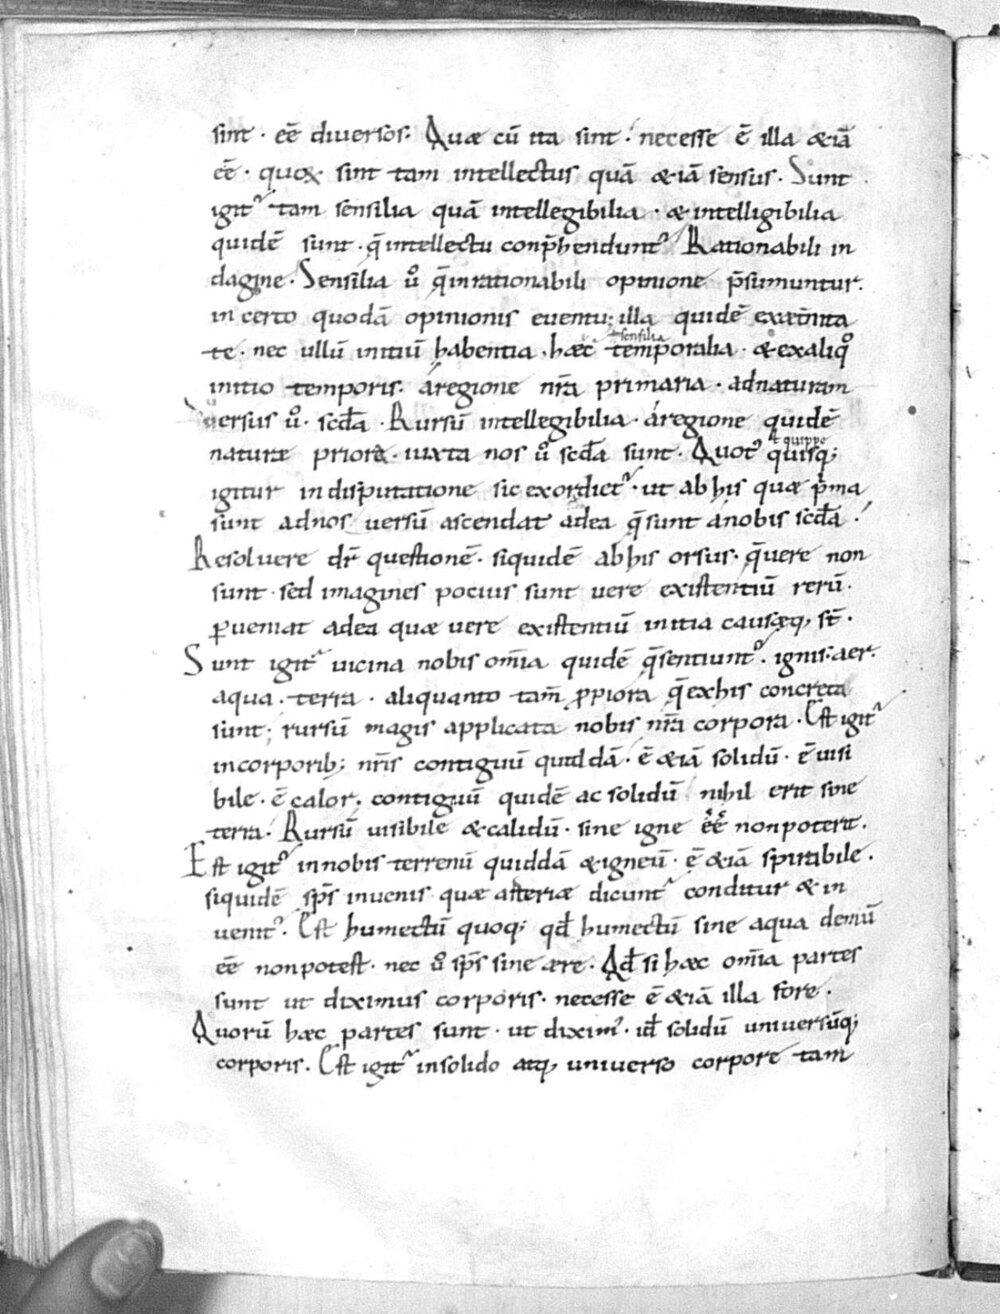 sint · eē diuersos· Quæ cū ita sint · necesse ē illa &iā
eē · quoꝝ sint tam intellectus quā &iā sensus · Sunt
igit᷑ tam sensilia quā intellegibilia · & intelligibilia
quidē sunt · q̄ intellectu conp̄hendunt᷑ Rationabili in
dagine · Sensilia ū q̄ inrationabili opinione p̄sumuntur.
in certo quodā opinionis euentu; illa quidē ex æt̄nita
te · nec ullū initiū habentia · hæc temporalia · & exaliq̊
sensilia
initio temporis · áregione nr̄a primaria · adnaturam
uersus ū · scd̄a · Rursū intellegibilia · áregione quidē
naturæ priora · iuxta nos ū scd̄a sunt · Quot᷑ quisq;
ł quippe
igitur indisputatione sic exordict᷑ · ut ab his quæ p̄ma
sunt adnos uersū ascendat adea q̄ sunt ánobis scd̄a ·
Resoluere dr̄ questionē · siquidē ab his orsus · q̄ uere non
sunt · sed imagines pocius sunt uere existentiū rerū ·
ꝑueniat adea quæ uere existentiū initia causæq; st̄ ·
Sunt igit᷑ uicina nobis om̄ia quidē q̄ sentiunt᷑ · ignis · aer ·
aqua · terra · aliquanto tam̄ ꝓpiora q̄ exhis concreta
sunt; rursū magis applicata nobis nr̄a corpora · Est igit᷑
incorporib; nr̄is contiguū quiddā · ē &iā solidū · ē uisi
bile · ē calor · contiguū quidē ac solidū nihil erit sine
terra · Rursū uisibile & calidū · sine igne eē non poterit ·
Est igit᷑ innobis terrenū quiddā & igneū · ē &iā spirabile ·
siquidē sp̄s inuenis quæ arteriæ dicunt᷑ conditur & in
uenit᷑ · Est humectū quoq; qd̄ humectū sine aqua demū
eē non potest · nec ū sp̄s sine ære · Qd̄ si hæc om̄ia partes
sunt ut diximus corporis · necesse ē &iā illa fore ·
Quorū hæc partes sunt · ut dixim᷑ · id̄ solidū uniuersūq;
corporis · Est igit᷑ insolido atq; uniuerso corpore tam